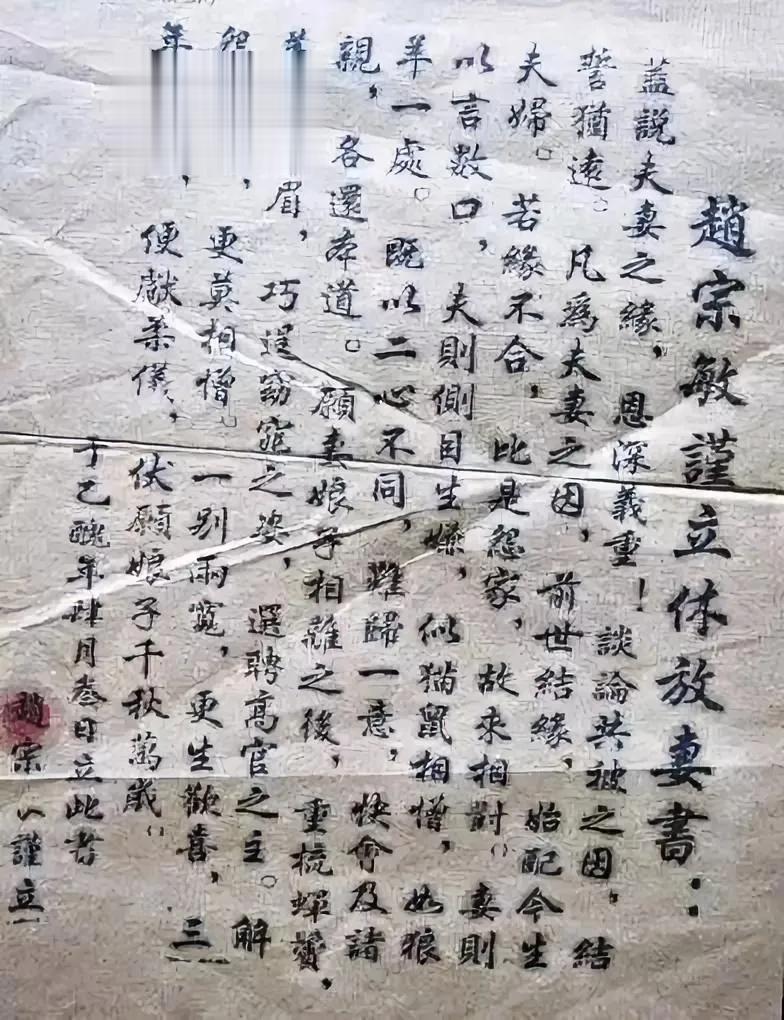 趙宗敏謹立休放妻書：
蓋説夫妻之緣，恩深義重！談論共被之因，結
誓猶遠。凡爲夫妻之因，前世結緣，始配今生
夫婦。若緣不合，比是怨家，故來相對。妻則
以言數口，夫則側目生嫌，似猫鼠相憎，如狼
羊一處。既以二心不同，難歸一意，快會及諸
親，各還本道。願妻娘子相離之後，重梳蟬鬢，
眉，巧逞窈窕之姿，選聘高官之主。解
，更莫相憎。一别兩寬，更生歡喜，三
年，便獻柔儀，伏願娘子千秋萬歲。
于乙醜年肆月叁日立此書
趙宗謹立